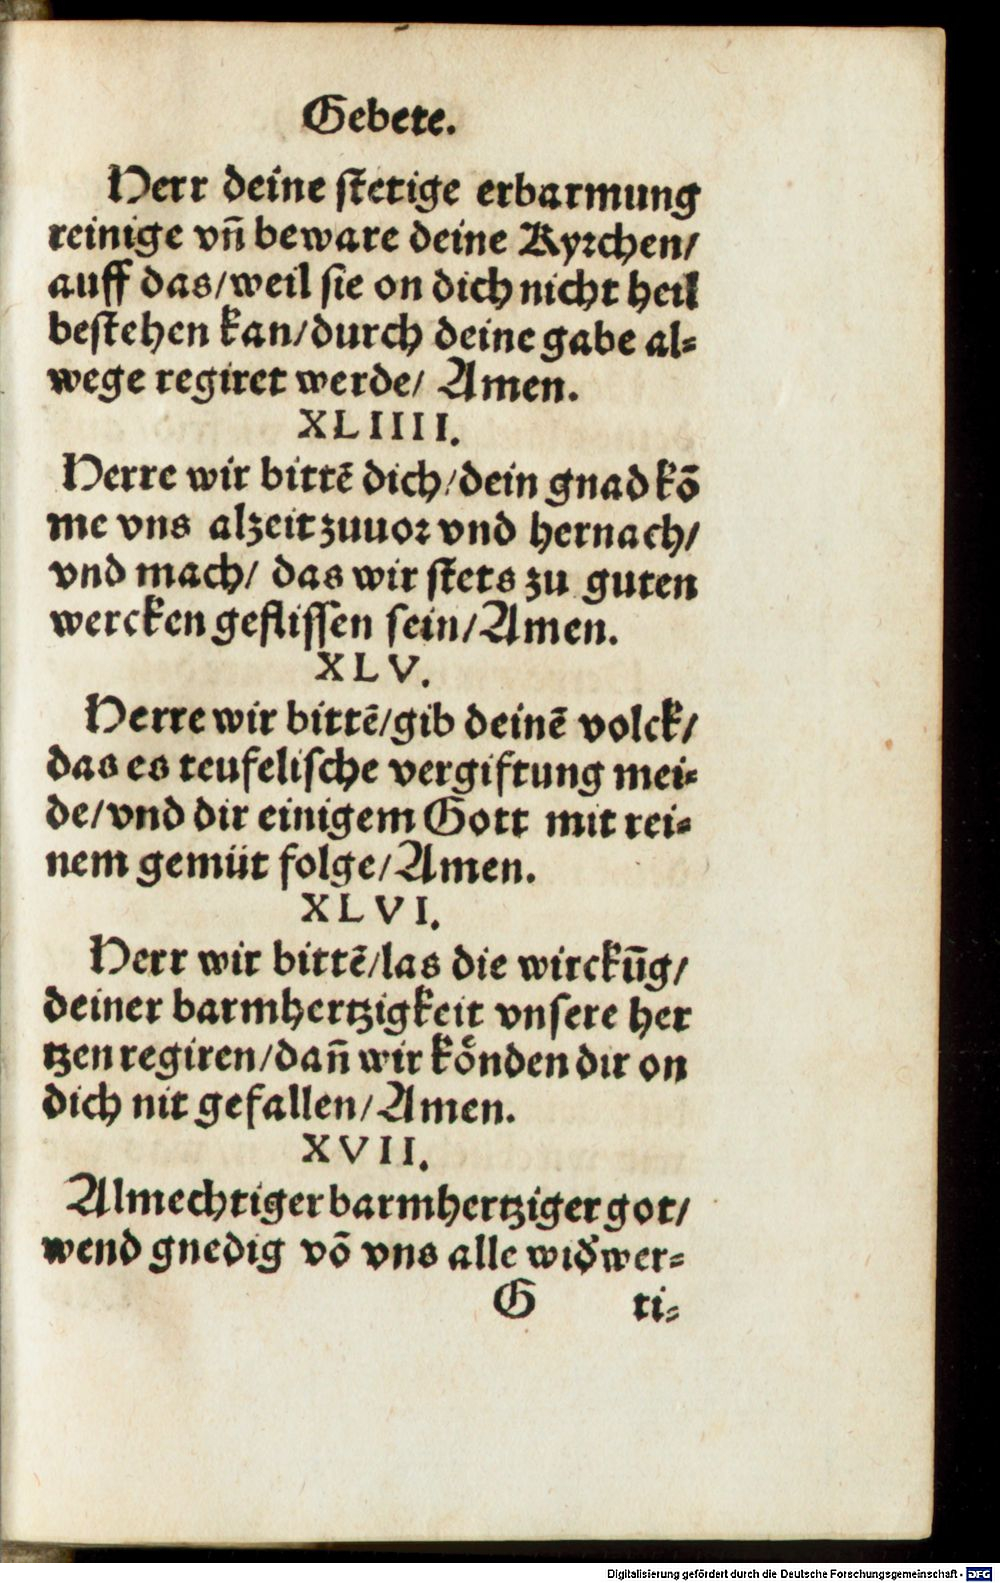 Gebete.
Herr deine stetige erbarmung
reinige vñ beware deine Kyrchen/
auff das/weil sie on dich nicht heil
bestehen kan/durch deine gabe al-
wege regiret werde/ Amen.
XLIIII.
Herre wir bittē dich/dein gnad kō
me vns alzeit zuuor vnd hernach/
vnd mach/ das wir stets zu guten
wercken geflissen sein/Amen.
XLV.
Herre wir bittē/gib deinē volck/
das es teufelische vergiftung mei-
de/vnd dir einigem Gott mit rei-
nem gemüt folge/Amen.
XLVI.
Herr wir bittē/las die wirckūg/
deiner barmhertzigkeit vnsere her
tzen regiren/dañ wir könden dir on
dich nit gefallen/Amen.
XVII.
Almechtiger barmhertziger got/
wend gnedig vō vns alle wid̄wer-
G ti-
Digitalisierung gefördert durch die Deutsche Forschungsgemeinschaft - DFG